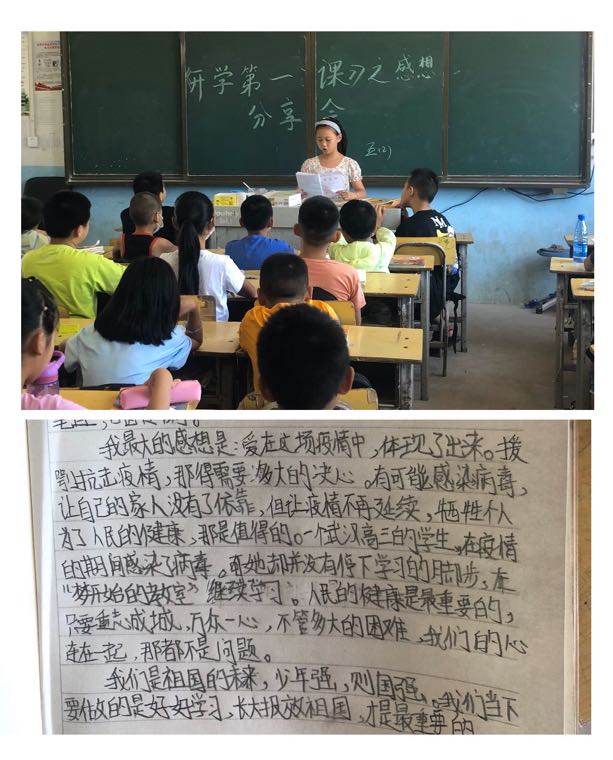 开学第一课》之感想
分享会
五(2)
我最大的感想是:爱在这场疫情中,体现了出来。援
鄂抗击疫情,那得需要多大的决心。有可能感染病毒,
让自己的家人没有了依靠,但让疫情不再延续,牺牲个人
为了人民的健康,那是值得的。一个武汉高三的学生,在疫情
的期间感染了病毒。可她却并没有停下学习的脚步,在
“梦开始的教室”继续学习。人民的健康是最重要的,
只要重志成城,万众一心,不管多大的困难,我们的心
连在一起,那都不是问题。
我们是祖国的未来,少年强,则国强。我们当下
要做的是好好学习,长大报效祖国,才是最重要的